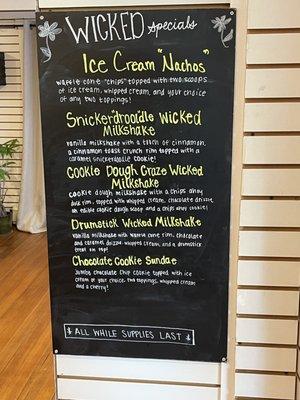 WICKED Specials
Ice Cream "Nachos"
Waffle cone "chips" topped with two scoops
of ice cream, whipped cream, and your choice
of any two toppings!
Snicker"droodle Wicked
Milkshake
Vanilla milkshake with a touch of cinnamon,
a cinnamon toast crunch rim topped with a
caramel snickerdoodle cookie!
Cookie Dough Craze Wicked
Milkshake
Cookie dough milkshake with a chips ahoy
rim, topped with whipped cream, chocolate drizzle,
an edible cookie dough scoop and a chips ahoy cookie!
Drumstick Wicked Milkshake
Vanilla milkshake with waffle cone rim, chocolate
and caramel drizzle, whipped cream, and a drumstick
treat on top!
Chocolate Cookie Sundae
Jumbo chocolate chip cookie topped with ice
cream of your choice, two toppings, whipped cream
and a cherry!
ALL WHILE SUPPLIES LAST